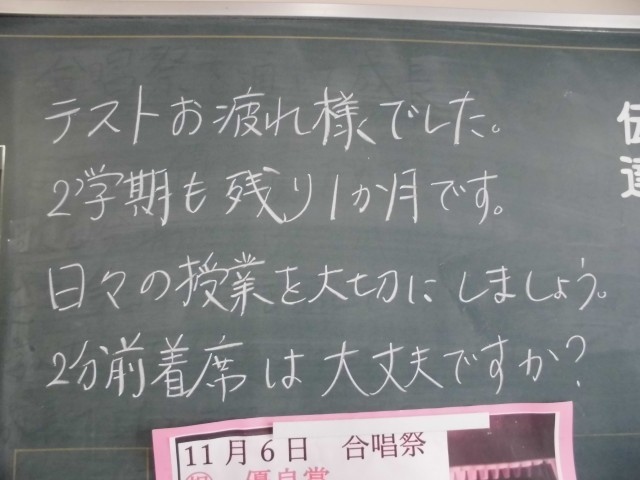 テストお疲れ様でした。
2学期も残り1か月です。
日々の授業を大切にしましょう。
2分前着席は大丈夫ですか?
伝達
11月6日 合唱祭
優良賞